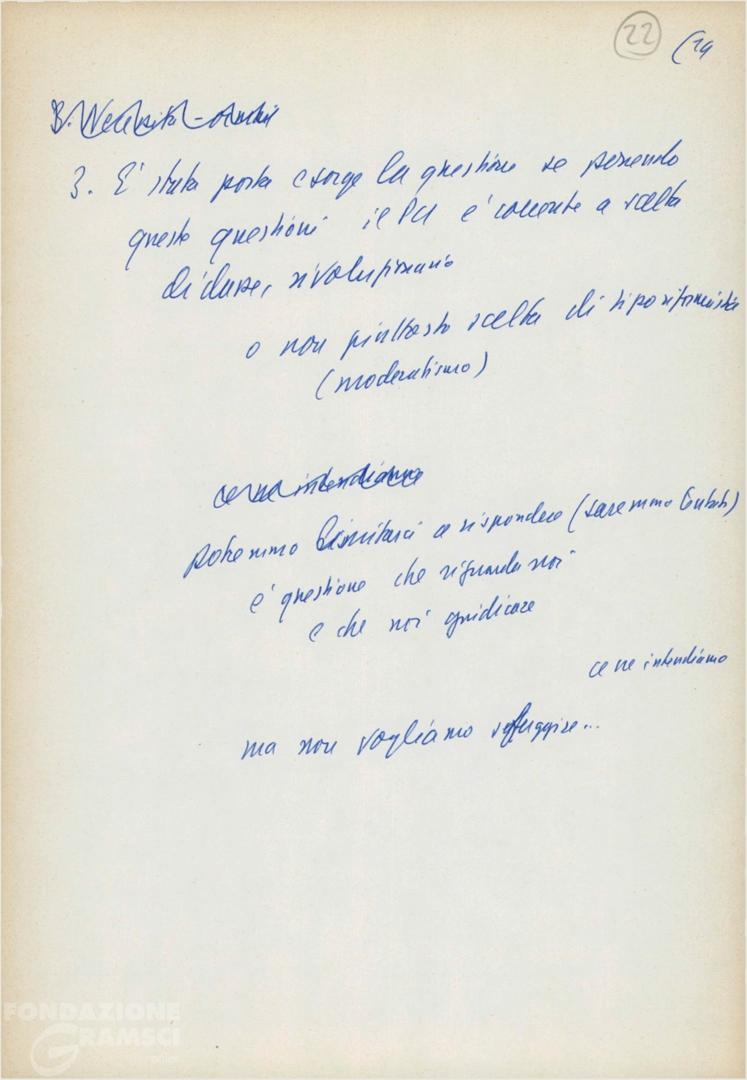 22 (24
B. Necessità
3. È stata posta e sorge la questione se ponendo
queste questioni il PCI è coerente a scelta
di classe, rivoluzionaria
o non piuttosto scelta di tipo riformista
(moderatismo)
ce ne intendiamo
potremmo limitarci a rispondere (saremmo
è questione che riguarda noi
e che noi giudicare
ce ne intendiamo
ma non vogliamo sfuggire...
FONDAZIONE
GRAMSCI